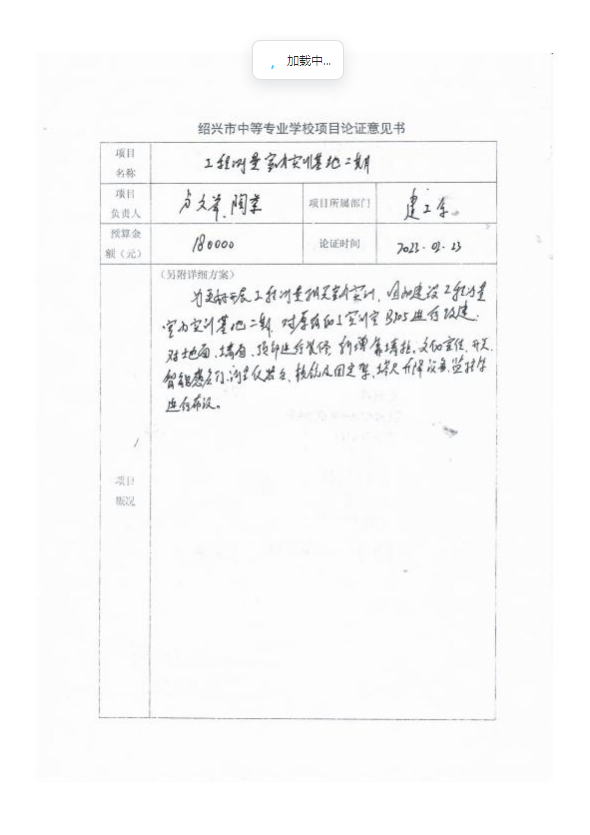 加载中...
绍兴市中等专业学校项目论证意见书
项目名称 工程测量室内实训基地二期
项目负责人 陶業 项目所属部门 建工系
预算金额（元） 180000 论证时间 2023.03.23
（另附详细方案）
为更好开展工程测量相关室内实训，因此建设工程测量
室内实训基地二期，对原有的实训室B305进行改建：
对地面、墙面、顶部进行装修，新增靠墙柜、文化宣传、开关
智能感应门、测量仪器台、棱镜及固定架、塔尺升降设备、监控等
进行布设。
项目概况